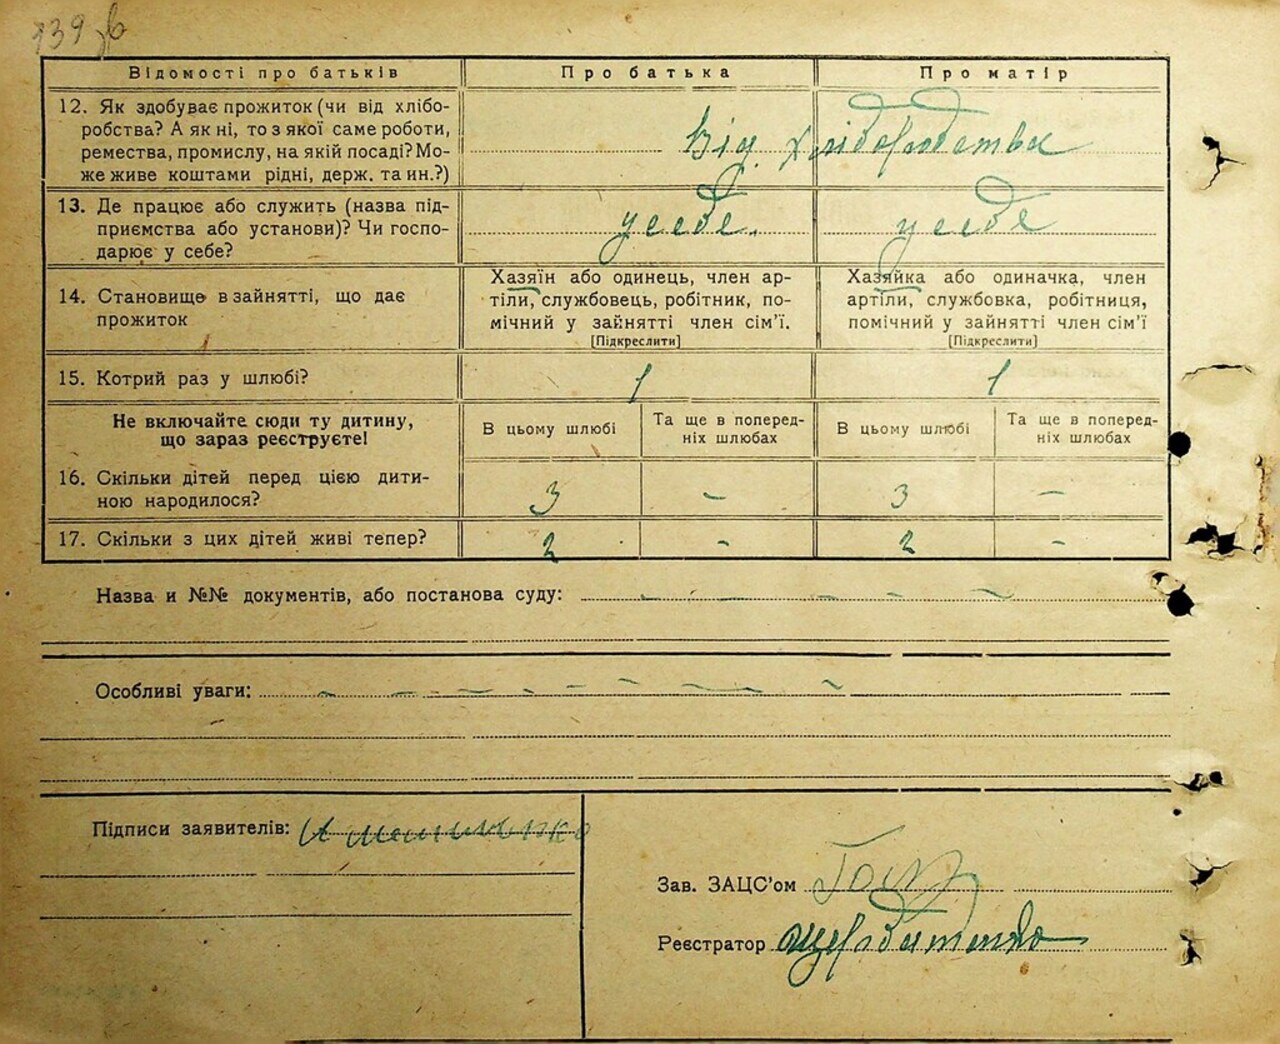 139 зв
Відомості про батьків
Про батька
Про матір
12. Як здобуває прожиток (чи від хлібо-
робства? А як ні, то з якої саме роботи,
ремества, промислу, на якій посаді? Мо-
же живе коштами рідні, держ. та ин.?)
Від хліборобства
13. Де працює або служить (назва під-
приємства або установи)? Чи госпо-
дарює у себе?
у себе.
у себе
14. Становище в зайнятті, що дає
прожиток
Хазяїн або одинець, член ар-
тіли, службовець, робітник, по-
мічний у зайнятті член сім'ї.
[Підкреслити]
Хазяйка або одиначка, член
артіли, службовка, робітниця,
помічний у зайнятті член сім'ї
[Підкреслити]
15. Котрий раз у шлюбі?
1
1
Не включайте сюди ту дитину,
що зараз реєструєте!
В цьому шлюбі
Та ще в поперед-
ніх шлюбах
В цьому шлюбі
Та ще в поперед-
ніх шлюбах
16. Скільки дітей перед цією дити-
ною народилося?
3
-
3
-
17. Скільки з цих дітей живі тепер?
2
-
2
-
Назва и №№ документів, або постанова суду: - - - - -
Особливі уваги: - - - - - - - - -
Підписи заявителів:
Зав. ЗАЦС'ом
Реєстратор Щербатенко